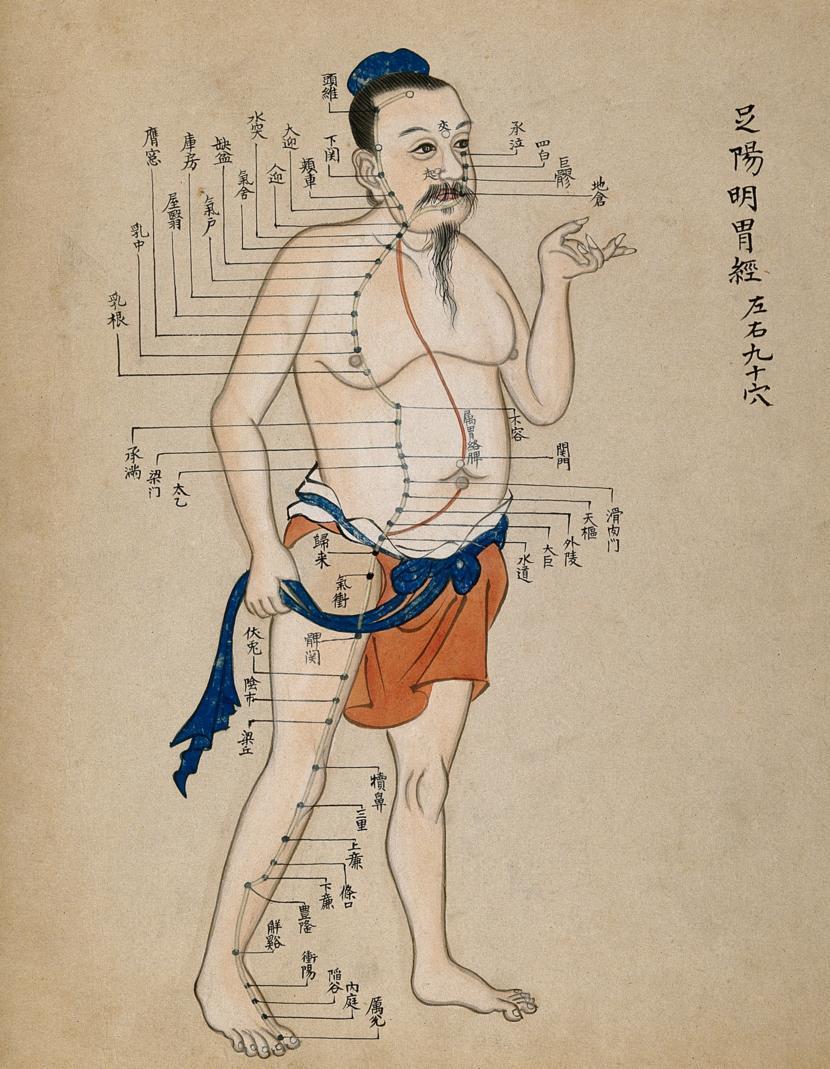 足陽明胃經 左右九十穴
頭維
下関
頬車
大迎
人迎
水突
氣舍
缺盆
氣戸
庫房
屋翳
膺窓
乳中
乳根
承泣
四白
巨髎
地倉
交
起
不容
属胃絡脾
関門
承満
梁门
太乙
滑肉门
天樞
外陵
大巨
水道
歸来
氣衝
髀関
伏兎
陰市
梁丘
犢鼻
三里
上廉
條口
下廉
豊隆
解谿
衝陽
陥谷
内庭
厲兌